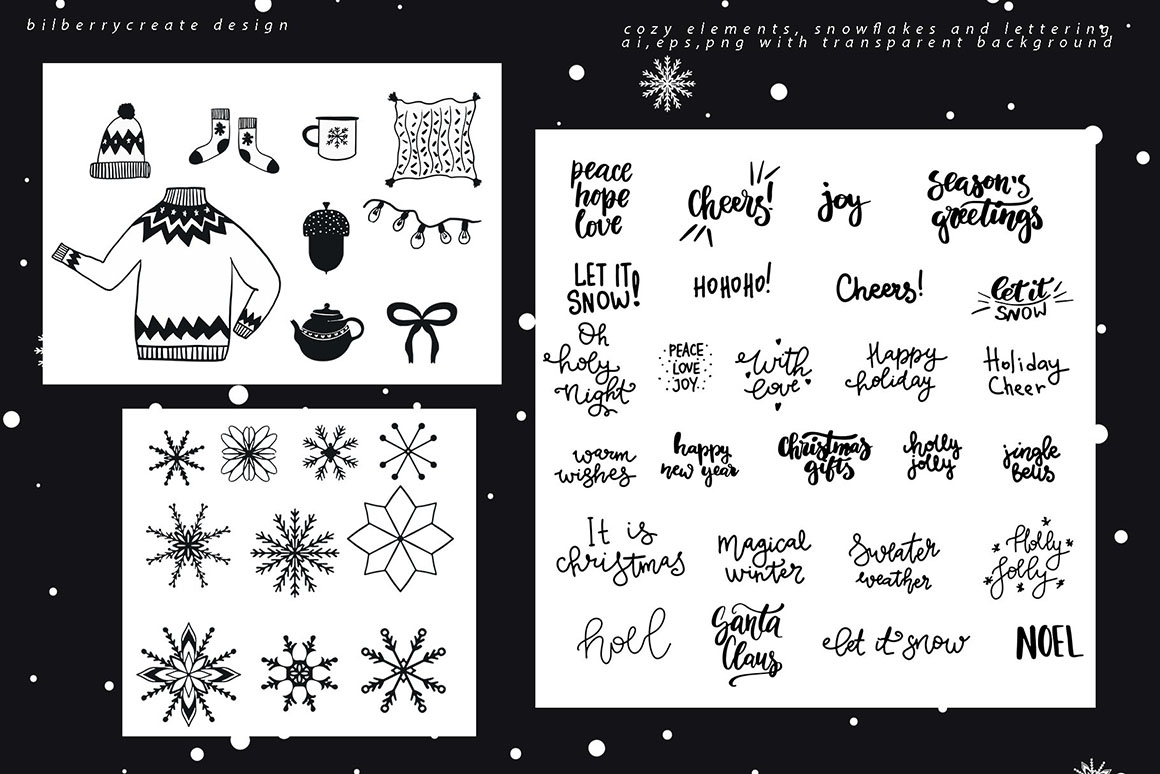 bilberrycreate design
cozy elements, snowflakes and lettering
ai,eps,png with transparent background
peace
hope
love
Cheers!
joy
season's
greetings
LET IT
SNOW!
HOHOHO!
Cheers!
let it
SNOW
Oh
holy
Night
PEACE
LOVE
JOY
With
love
Happy
holiday
Holiday
Cheer
warm
wishes
happy
new year
Christmas
gifts
holly
jolly
jingle
bells
It is
christmas
Magical
winter
Sweater
weather
Holly
Jolly
noel
Santa
Claus
let it snow
NOEL